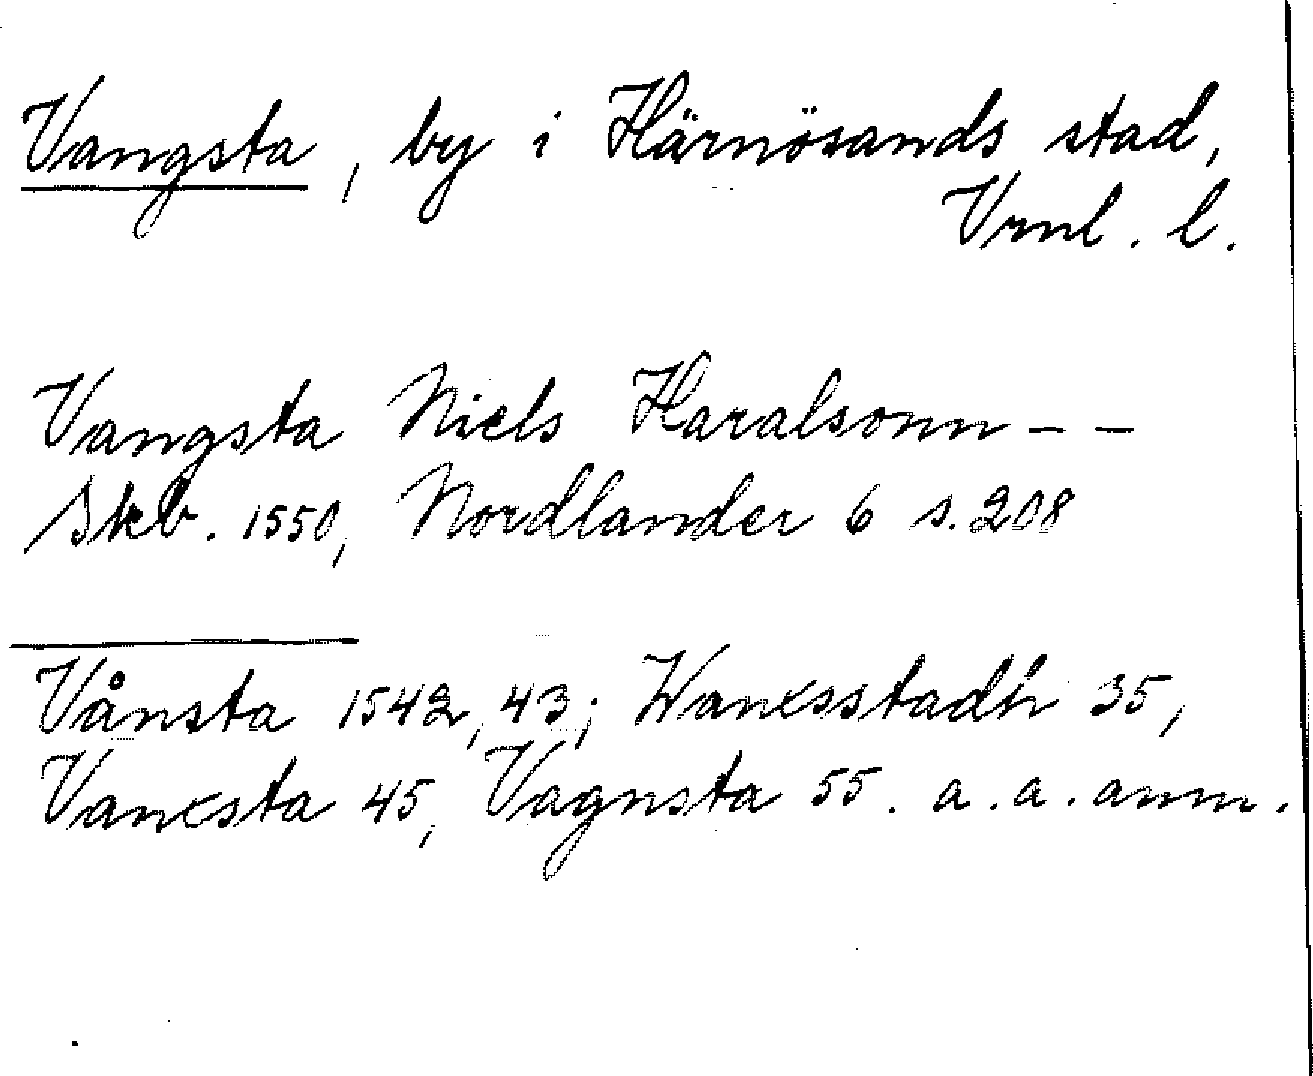 Vangsta, by i Härnösands stad,
Vrnl. l.
Vangsta Niels Haralsonn - -
Skb. 1550, Nordlander 6 s. 208
Vånsta 1542, 43; Wanesstadh 35,
Vanesta 45, Vagnsta 55. a. a. anm.